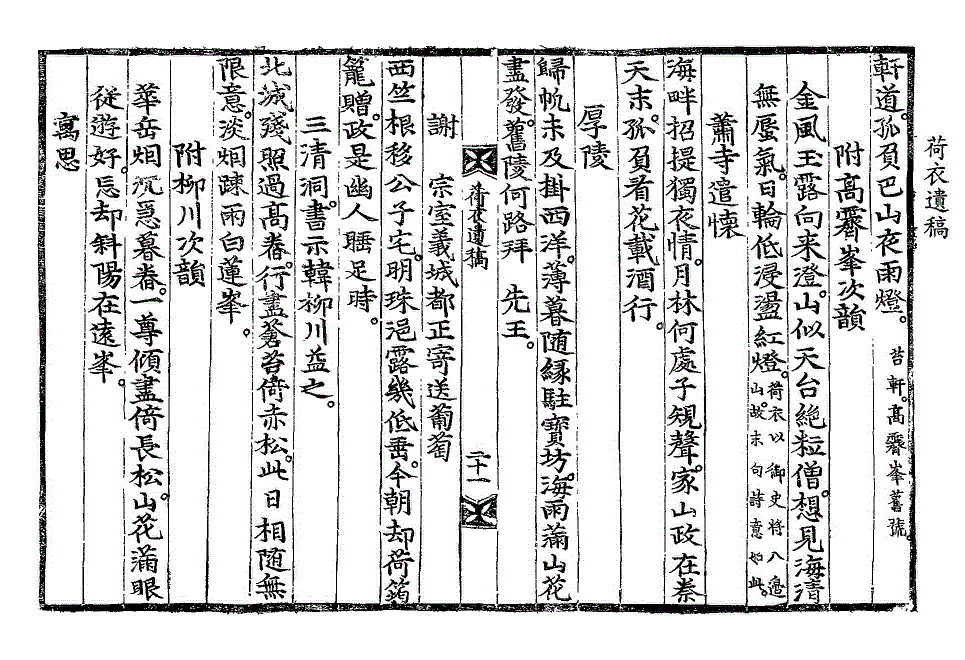 荷衣遺稿
軒道。孤負巴山夜雨燈。苔軒。高霽峯舊號。
附高霽峯次韻
金風玉露向來澄。山似天台絶粒僧。想見海淸
無蜃氣。日輪低浸盪紅燈。荷衣以御史將入邊山。故末句詩意如此。
蕭寺遣懷
海畔招提獨夜情。月林何處子規聲。家山政在秦
天末。孤負看花載酒行。
厚陵
歸帆未及掛西洋。薄暮随緣駐寶坊。海雨滿山花
盡發。舊陵何路拜 先王。
荷衣遺稿
二十一
謝 宗室義城都正寄送葡萄
西竺根移公子宅。明珠浥露幾低垂。今朝却荷筠
籠贈。政是幽人睡足時。
三淸洞。書示韓柳川益之。
北城殘照過高春。行盡蒼苔倚赤松。此日相随無
限意。淡烟踈雨白蓮峯。
附柳川次韻
華岳烟沉急暮舂。一尊傾盡倚長松。山花滿眼
從遊好。忘却斜陽在遠峯。
寓思